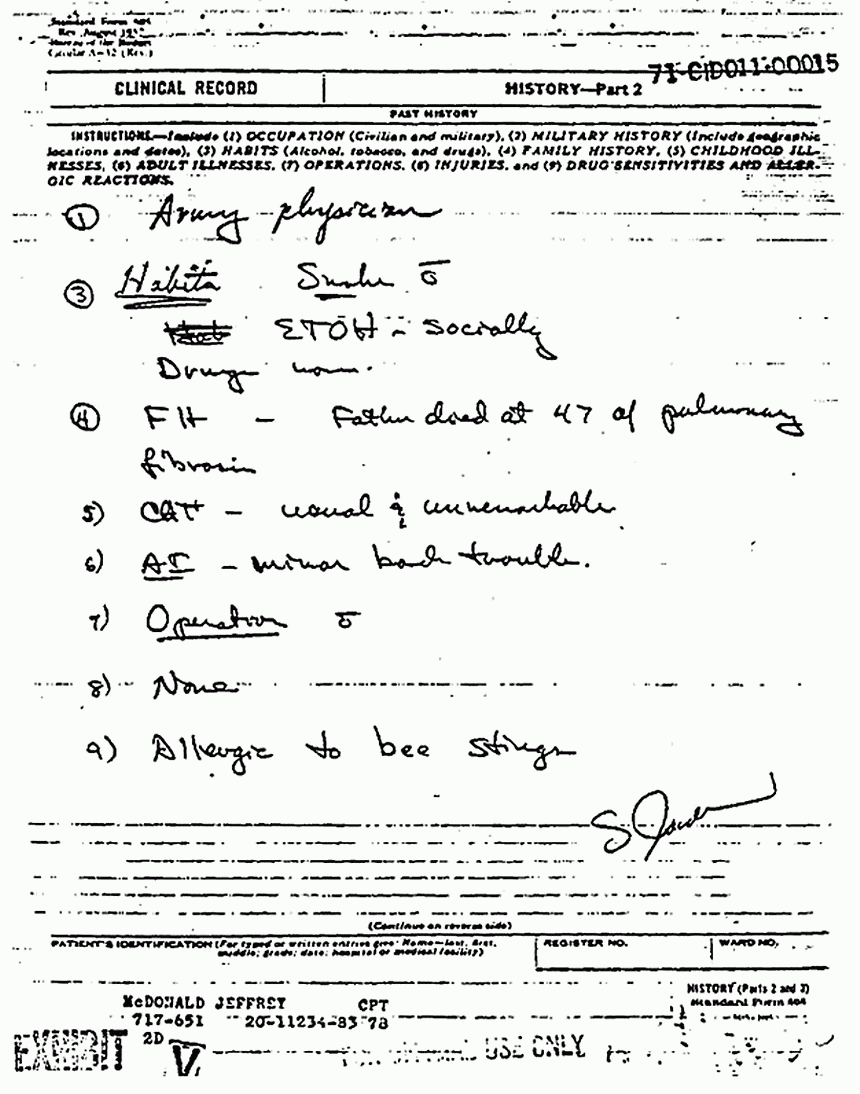 Standard Form 504
Rev. August 1952
Bureau of the Budget
Circular A-32 (Rev.)
71-CID011-00015
CLINICAL RECORD
HISTORY—Part 2
PAST HISTORY
INSTRUCTIONS.—Include (1) OCCUPATION (Civilian and military), (2) MILITARY HISTORY (Include geographic
locations and dates), (3) HABITS (Alcohol, tobacco, and drugs), (4) FAMILY HISTORY, (5) CHILDHOOD ILL-
NESSES, (6) ADULT ILLNESSES, (7) OPERATIONS, (8) INJURIES, and (9) DRUG SENSITIVITIES AND ALLER-
GIC REACTIONS.
① Army physician
③ Habits Smoke ō
ETOH - Socially
Drugs none.
④ FH — Father died at 47 of pulmonary
fibrosis
5) usual & unremarkable
6) AI - minor back trouble.
7) Operation ō
8) None
9) Allergic to bee stings
(Continue on reverse side)
PATIENT'S IDENTIFICATION (For typed or written entries give: Name—last, first,
middle; grade; date; hospital or medical facility)
REGISTER NO.
WARD NO.
HISTORY (Parts 2 and 3)
Standard Form 504
McDONALD JEFFREY CPT
717-651 20-11234-83 78
2D
EXHIBIT V
USE ONLY